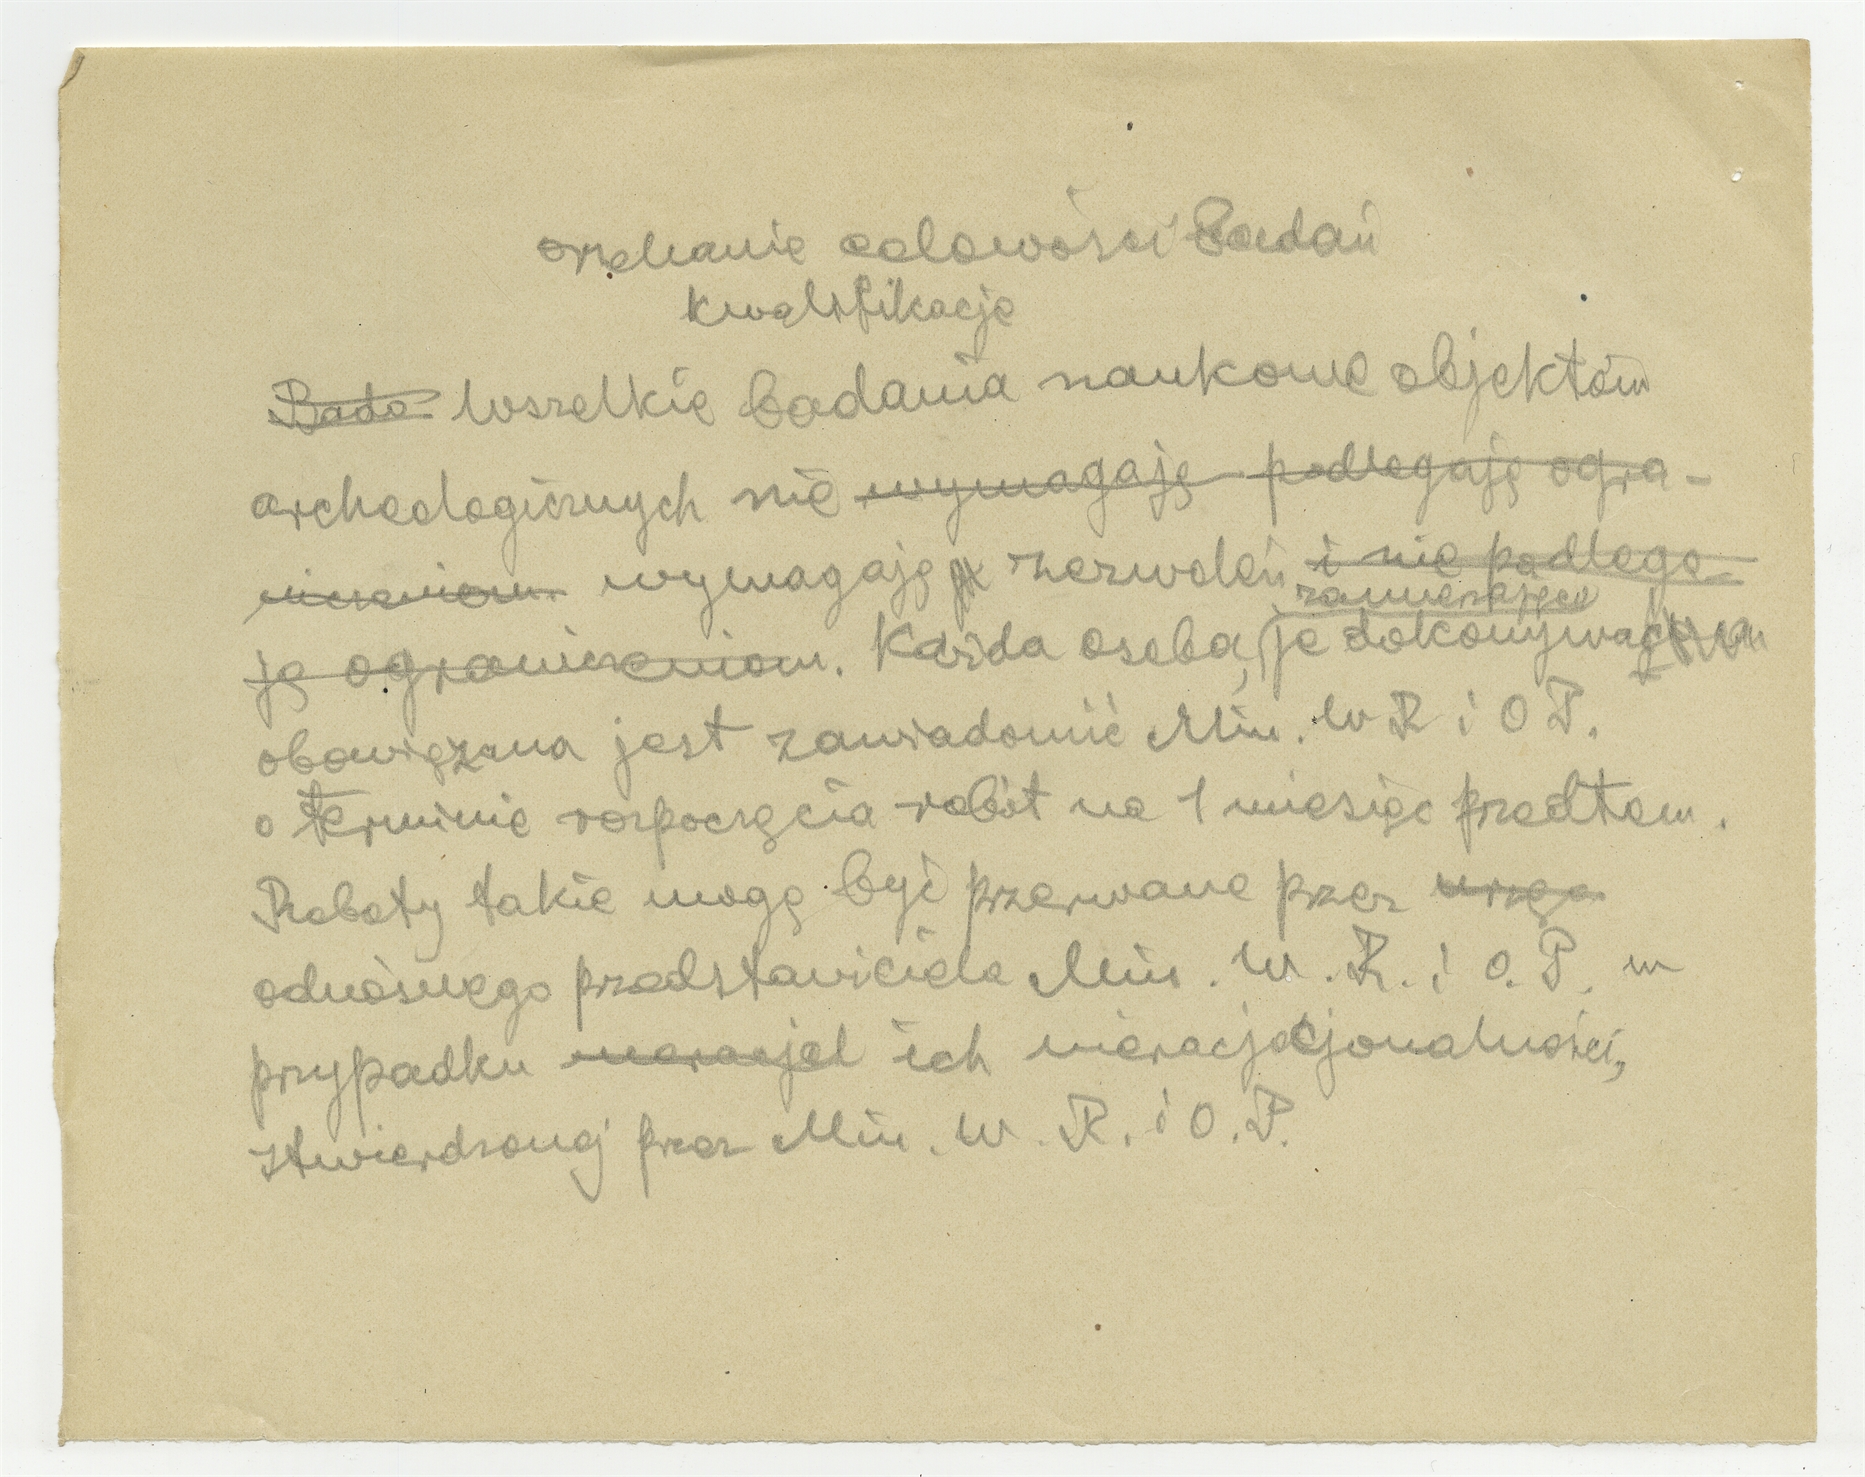 orzekanie celowości badań
kwalifikacje
Bada Wszelkie badania naukowe objektów
archeologicznych nie wymagają podlegają ogra-
niczeniom wymagają zezwoleń i nie podlega
zamierzająca
ją ograniczeniom. Każda osoba, je dokonywać
obowiązana jest zawiadomić Min. W R i O P.
o terminie rozpoczęcia robót na 1 miesiąc przedtem.
Roboty takie mogą być przerwane przez urzę
odnośnego przedstawiciela Min. W. R. i O. P. w
przypadku ich nieracjocjonalności,
stwierdzonej przez Min. W. R. i O. P.